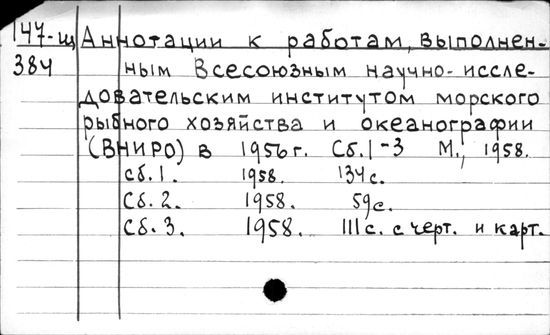 147-щ Аннотации к работам, выполнен-
384 ным Всесоюзным научно-иссле-
довательским институтом морского
рыбного хозяйства и океанографии
(ВНИРО) в 1956 г. Сб. 1-3 М., 1958.
Сб. 1. 1958. 134 с.
Сб. 2. 1958. 59 с.
Сб. 3. 1958. 111 с. с черт. и карт.